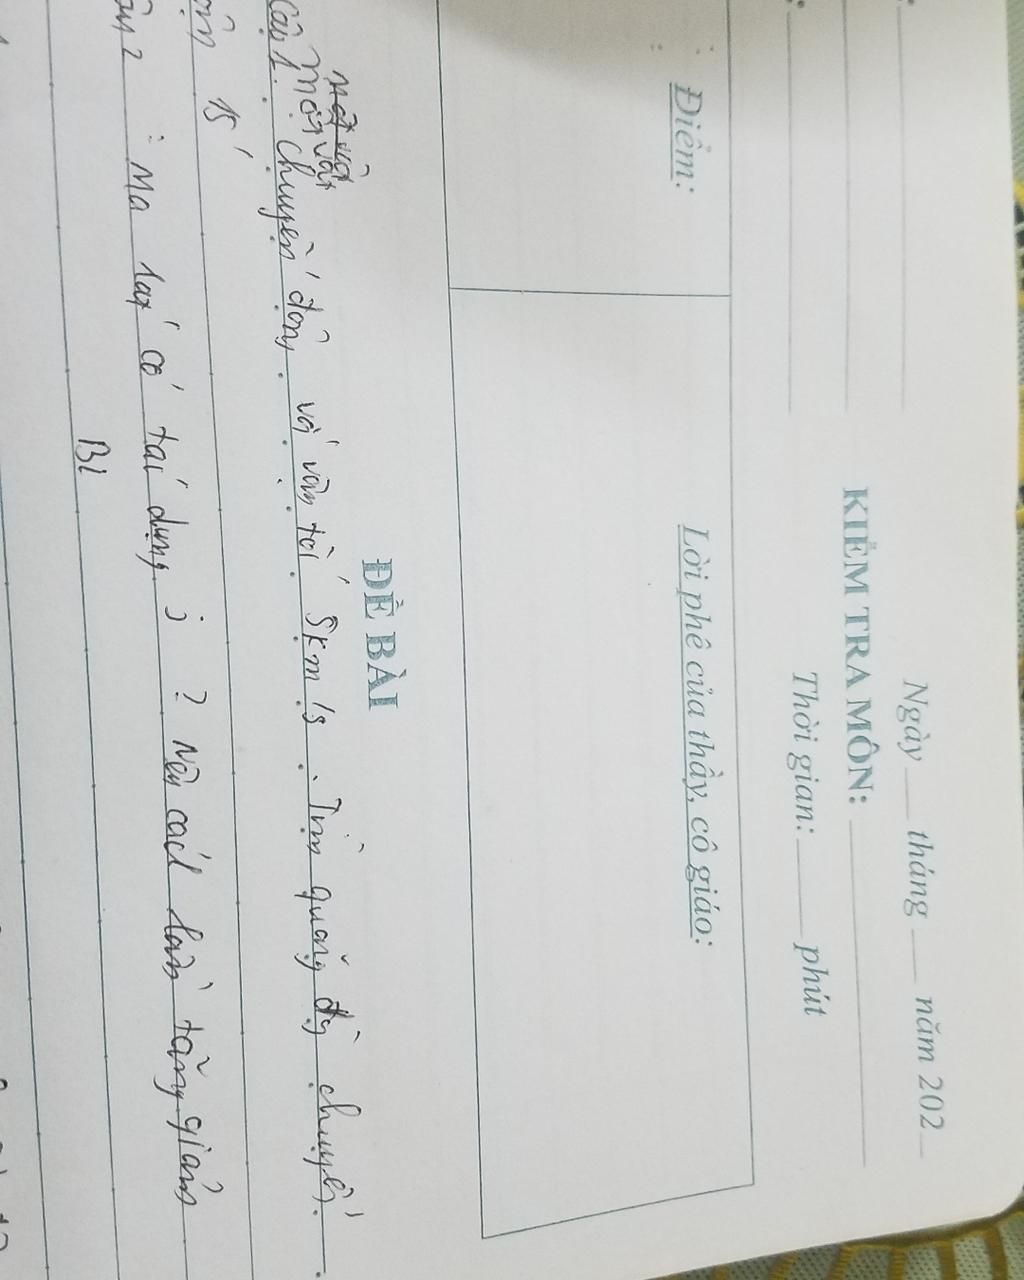 Ngày ___ tháng ___ năm 202
KIỂM TRA MÔN:
Thời gian: ___ phút
Điểm:
Lời phê của thầy, cô giáo:
ĐỀ BÀI
Một vật
Câu 1: chuyển động với vận tốc 5km/s. Tính quãng đg chuyển
15'
2: Ma sát có tác dụng j ? Nêu cách làm tăng giảm
Bl